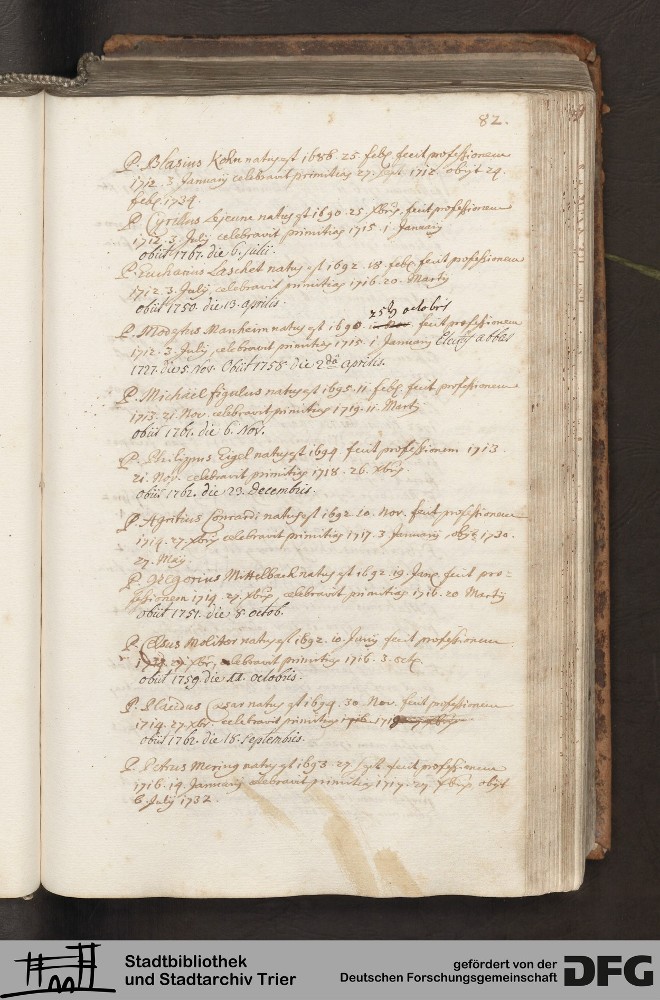 82.
P. Blasius Kohn natus est 1688. 25. feb. fecit professionem
1712. 3. Januarij celebravit primitias 27. sept. 1712. obijt 24.
feb. 1734.
P. Cyrillus Lejeune natus est 1690. 25. Xbris. fecit professionem
1712. 3. Julij celebravit primitias 1715. 1. Januarij
obiit 1767. die 6. Julii.
P. Eucharius Laschet natus est 1692. 18. feb. fecit professionem
1712. 3. Julij, celebravit primitias 1716. 20. Martij
obiit 1750. die 13. aprilis.
25 octobris
P. Modestus Manheim natus est 1690. fecit professionem
1712. 3. Julij, celebravit primitias 1715. 1. Januarij Electus abbas
1727. die 5. Nov. Obiit 1758. die 2da aprilis.
P. Michael figulus natus est 1695. 11. feb. fecit professionem
1713. 21. Nov. celebravit primitias 1719. 11. Martij
obiit 1761. die 6. Nov.
P. Philippus Eigel natus est 1694 fecit professionem 1713.
21. Nov. celebravit primitias 1718. 26. Xbris.
obiit 1762. die 23. Decembris.
P. Agritius Conrardi natus est 1692. 10. Nov. fecit professionem
1714. 27. Xbris celebravit primitias 1717. 3 Januarij, obijt 1730.
27. Maij.
P. Gregorius Mittelbach natus est 1692. 19. fecit pro=
fessionem 1714. 27. Xbris, celebravit primitias 1716. 20 Martij
obiit 1751. die 8. octob.
P. Celsus Molitor natus est 1692. 10 Junij fecit professionem
1714. 27. Xbr, celebravit primitias 1716. 3. oct.
obiit 1759. die 11. octobris.
P. Placidus Casar natus est 1694. 30. Nov. fecit professionem
1714. 27. Xbr. celebravit primitias 1716 171
obiit 1762. die 18. septembris.
P. Petrus Mering natus est 1693. 27. sept. fecit professionem
1716. 19. Januarij celebravit primitias 1717. 27. Xbris, obijt
6. Julij 1732.
Stadtbibliothek
und Stadtarchiv Trier
gefördert von der
Deutschen Forschungsgemeinschaft
DFG